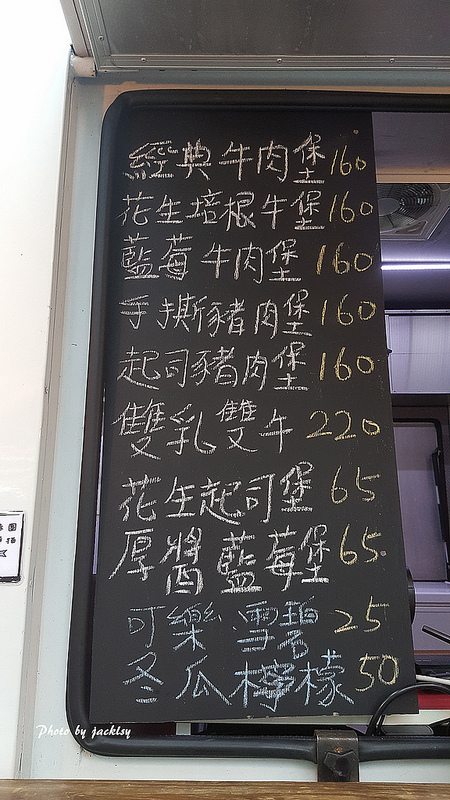 經典牛肉堡160
花生培根牛堡160
藍莓牛肉堡160
手撕豬肉堡160
起司豬肉堡160
雙乳雙牛220
花生起司堡65
厚醬藍莓堡65
可樂 雪碧 25
冬瓜檸檬50
Photo by jacklsy